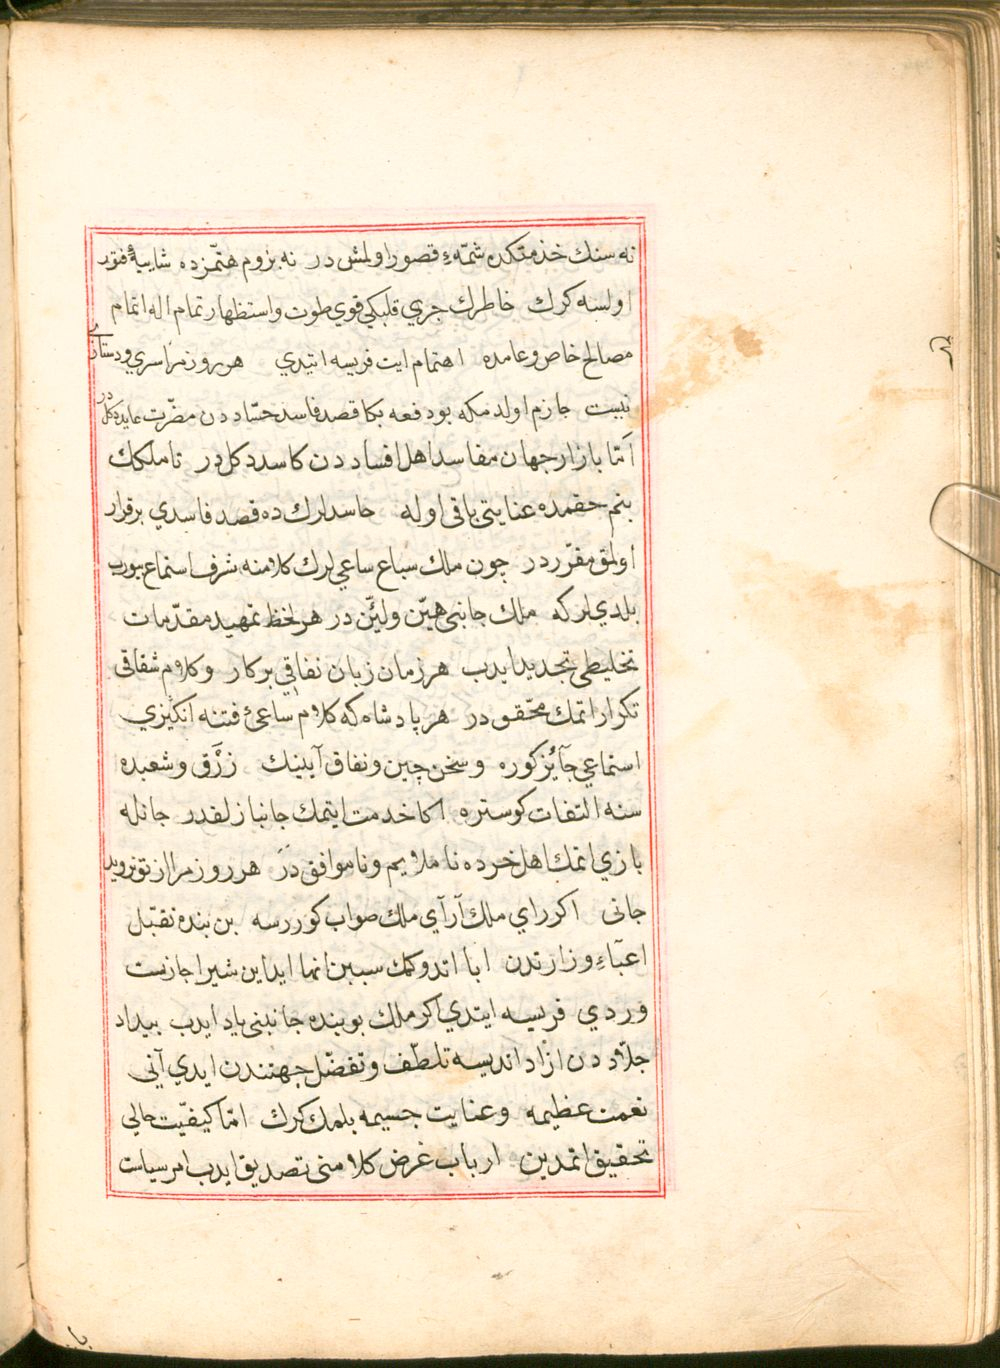 نه سنك خذمتكده شمّهء قصور اولمش در نه بزوم همّتمزده شايبهٔ فتور
اولسه كرك خاطرك جري قلبكي قوي طوت واستظهار تمام اله اتمام
مصالح خاص وعامده اهتمام ايت فريسه ايتدي هر روز مرا سري ودستاري
نيست جازم اولدمكه بو دفعه بكا قصد فاسد حسّاد دن مضرّت عايد دكل در
امّا بازار جهان مفاسد اهل افساد دن كاسد دكل در تا ملكك
بنم حقمده عنايتي باقي اوله حاسدلرك ده قصد فاسدي برقرار
اولمق مقرّر در چون ملك سباع ساعي لرك كلامنه شرف استماع بيورب
بلدي لر كه ملك جانبي هيّن وليّن در هر لحظه تمهيد مقدّمات
تخليطي تجديد ايدب هر زمان زبان نفاقي بر كار وكلام شقاقي
تكرار اتمك محقّق در هر پادشاه كه كلام ساعيء فتنه انكيزي
استماعي جآئز كوره وسخن چين ونفاق آيينك زرق وشعبده
سنه التفات كوستره اكا خدمت ايتمك جانبازلقدر جانله
بازي اتمك اهل خرده نا ملايم ونا موافق در هر روز مرا از تو نرويد
جاني اكر راي ملك آراي ملك صواب كوررسه بن بنده تقبّل
اعبآء وزارتدن ابا اتدوكمك سببن انها ايداين شير اجازت
وردي فريسه ايتدي اكر ملك بو بنده جانبني ياد ايدب بيداد
جلّاد دن ازاد اتديسه تلطّف وتفضّل جهتندن ايدي آني
نعمت عظيمه وعنايت جسيمه بلمك كرك امّا كيفيّت حالي
تحقيق اتمدين ارباب غرض كلامني تصديق ايدب امر سياست